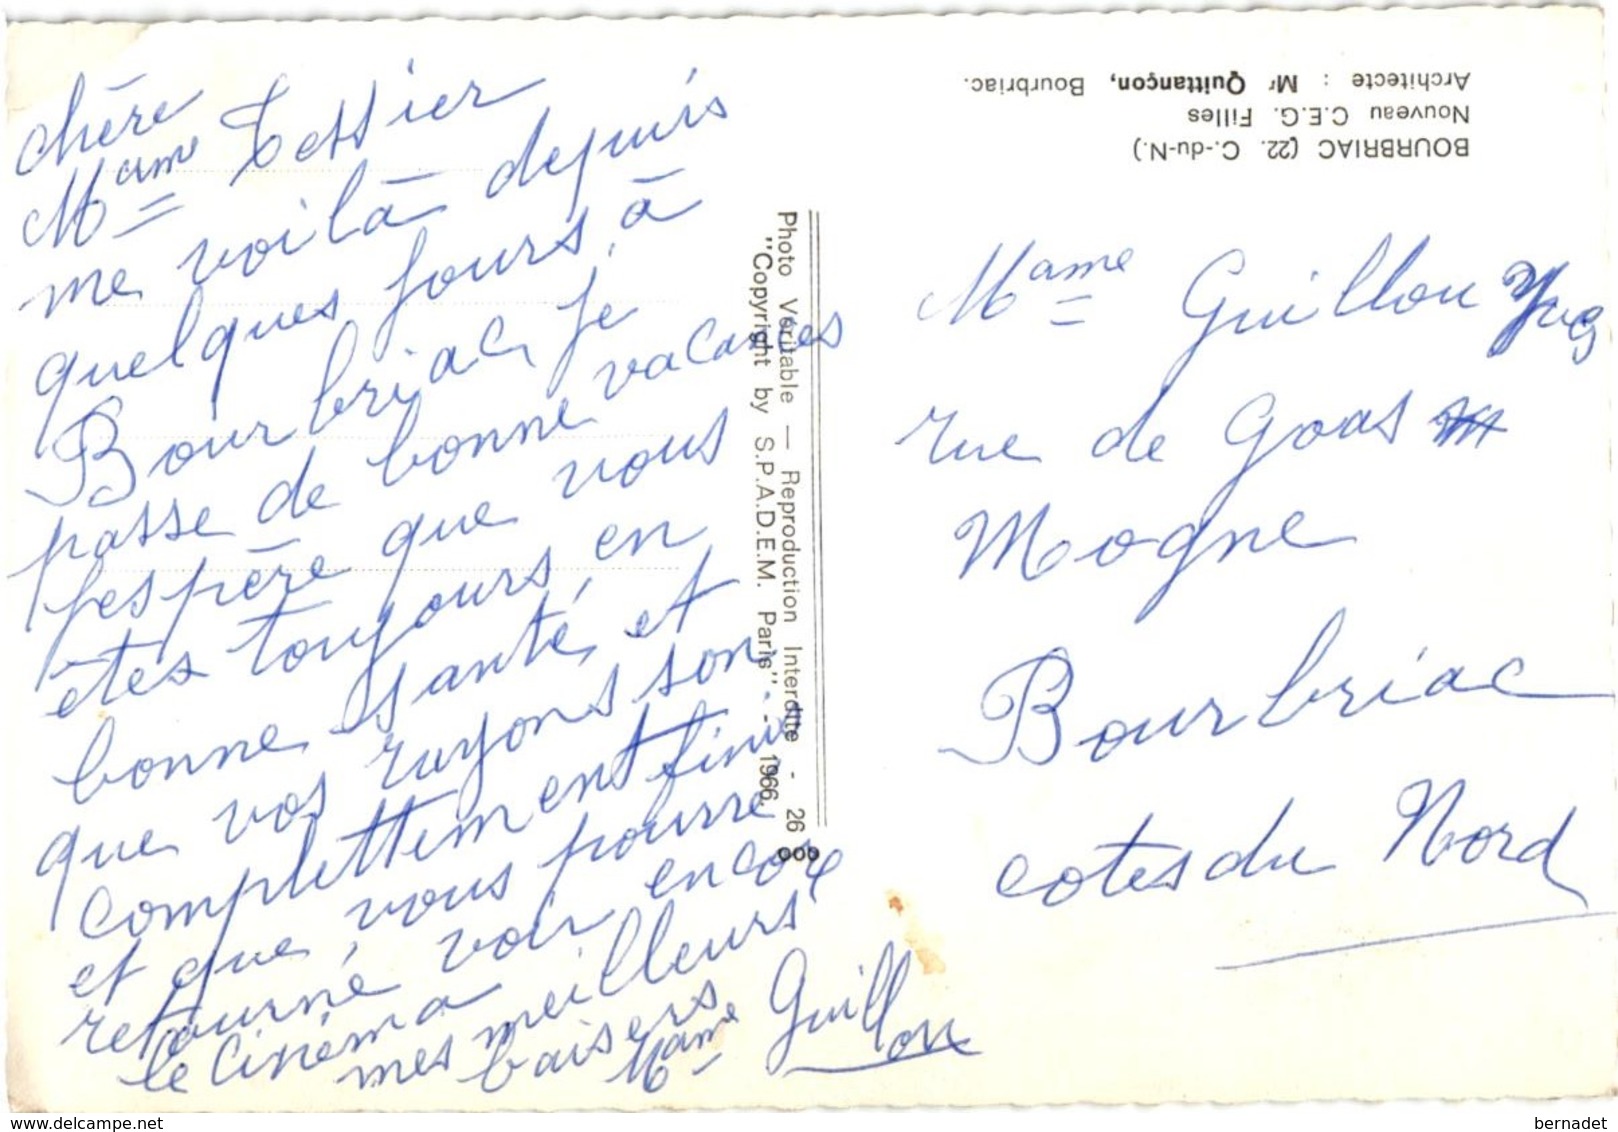 chère
Mame Tessier
me voilà depuis
quelques jours, à
Bourbriac, je
passe de bonne vacances
j'espère que vous
êtes toujours, en
bonne santé, et
que vos rayons son
complettement finie
et que, vous pourre
retourné voir encore
le cinéma
mes meilleurs
baisers
Mame Guillou
Photo Véritable — Reproduction Interdite - 26
"Copyright by S.P.A.D.E.M. Paris" - 1966.
BOURBRIAC (22. C.-du-N.)
Nouveau C.E.G. Filles
Architecte : Mr Quittançon, Bourbriac.
Mame Guillou
rue de Goas
Mogne
Bourbriac
cotes du Nord
www.delcampe.net
bernadet